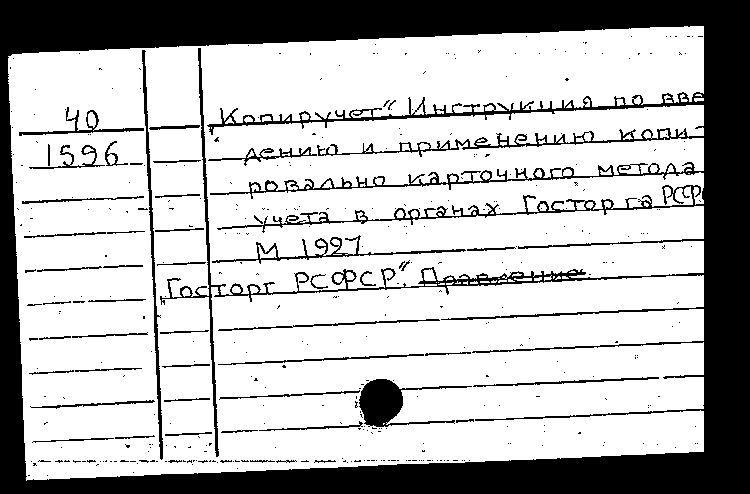 40
1596
„Копиручет“. Инструкция по вве
дению и применению копи-
ровально карточного метода
учета в органах Госторга РСФС
М 1927.
„Госторг РСФСР“. Правление